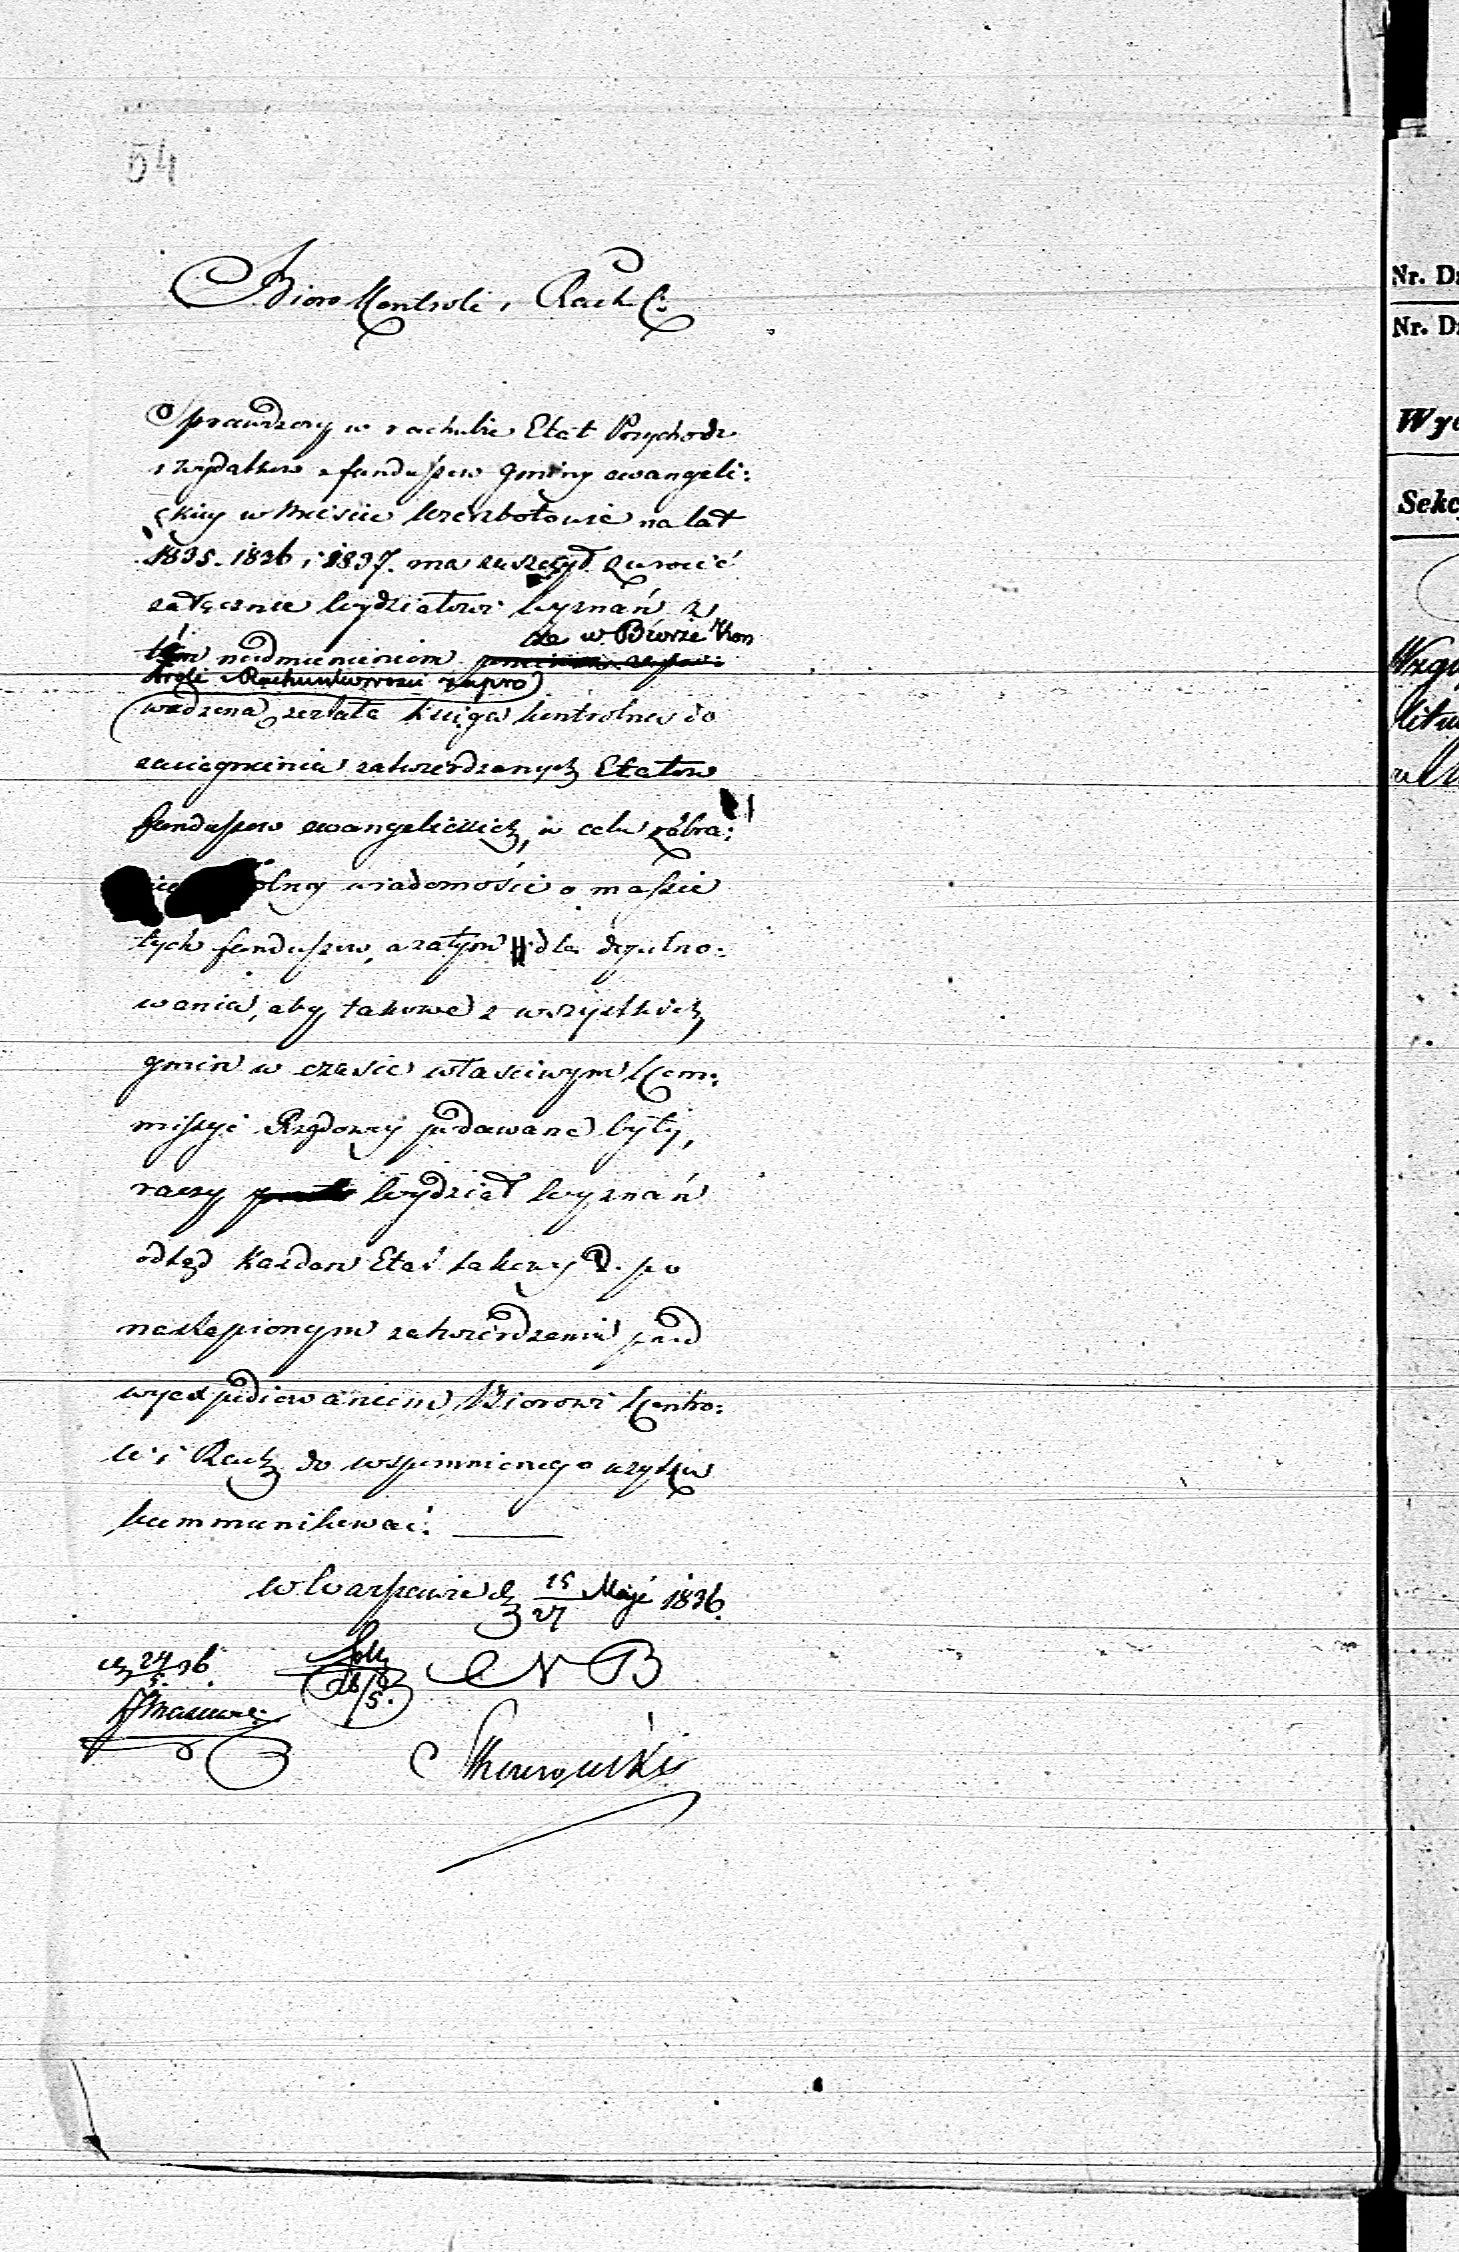 54
Bioro Kontroli i Rach.
Sprawdzony w rachubie Etat Przychodu
i wydatków funduszów Gminy ewangeli:
ckiey w Mieście Wierzbołowie na lat
1835. 1836 i 1837. ma zaszczyt zwrócić
załącznie Wydziałowi Wyznań z
że w Biorze Kon
tém nadmienieniem
troli i Rachunkowości zapro
wadzona została Księga kontrolna do
zaciągnienia zatwierdzonych Etatów
funduszów ewangelickich, w celu zebra:
wiadomości o massie
tych funduszów, a zatym dla
wania, aby takowe z wszystkich
gmin w czasie właściwym Kom:
missyi Rządowey podawane były,
raczy Wydział Wyznań
odtąd każden Etat takowy po
nastąpionym zatwierdzeniu przed
wyexpediowaniem Biorowi Kontro:
li i Rach. do wspomnionego użytku
kommunikować.
w Warszawie d. 15/27 Maja 1836.
d. 24/5 36
26/5.
N B
Nr. Dz
Nr. Dz
Wy
Sekc